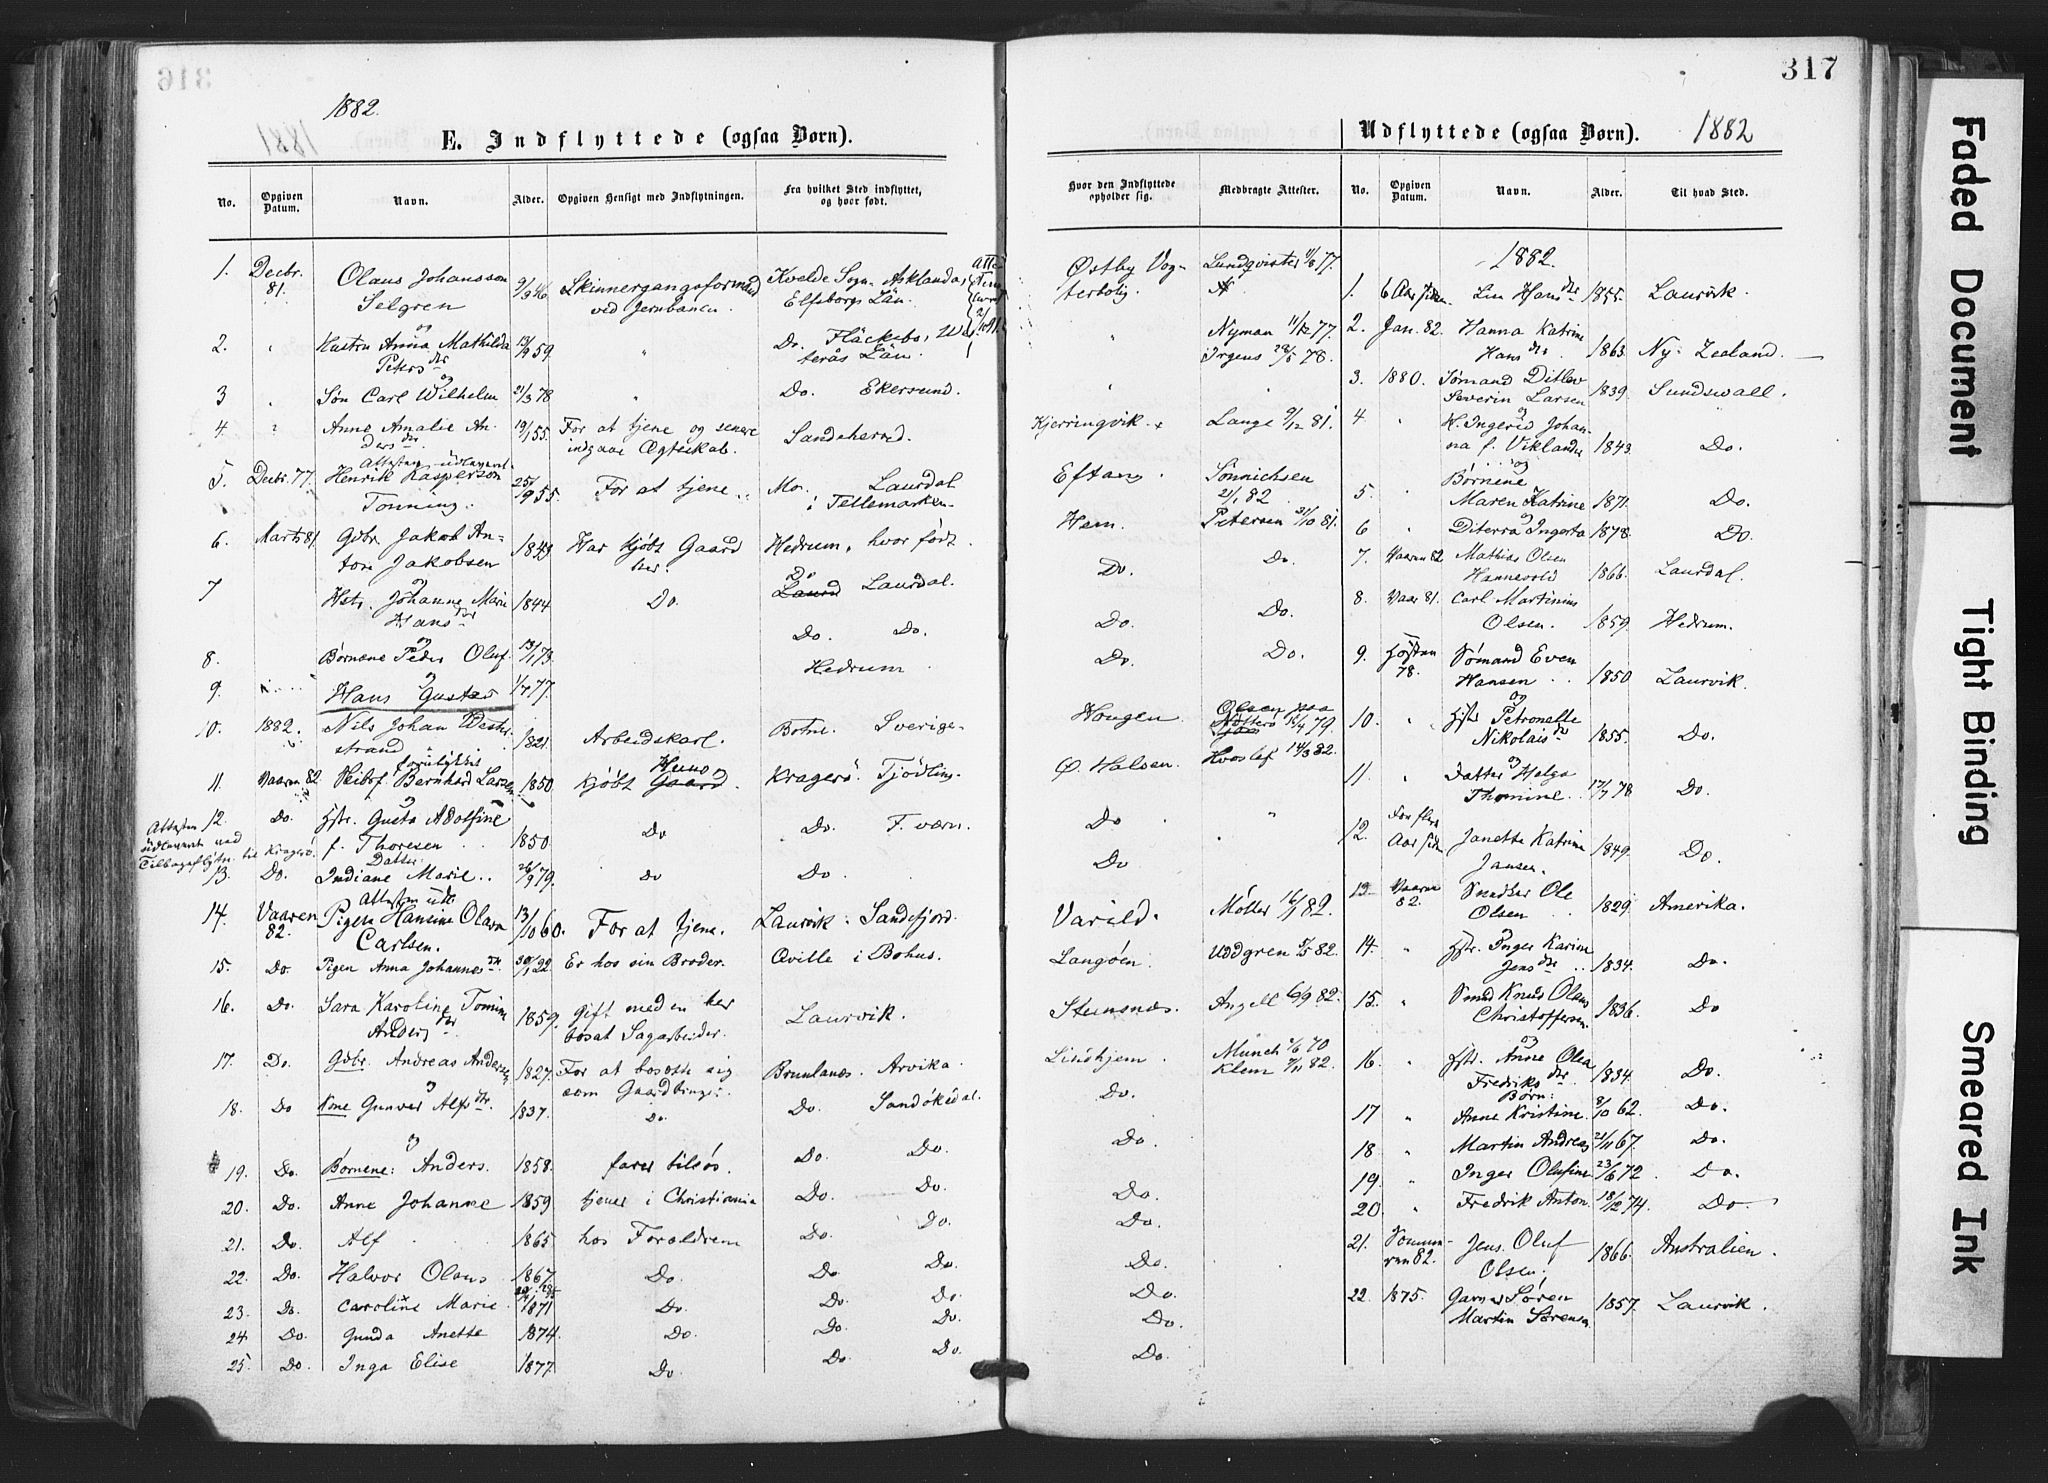 316
1882.
1881
E. Indflyttede (ogsaa Børn).
No. Opgiven Datum. Navn. Alder. Opgiven Hensigt med Indflytningen. Fra hvilket Sted indflyttet, og hvor født.
1. Decbr. 81. Olaus Johansson Selgren 9/3 46 Skinnergangsformand ved Jernbanen. Kvelde Sogn. Asklanda, Elfsborgs Län.
2. " Hustru Anna Mathilda Petersdr og 13/9 59. " Do. Fläckebo, Westerås Län.
3 " Søn Carl Wilhelm 21/3 78 " Do. Ekersund.
4. " Anne Amalie Andersdr. 19/1 55. For at tjene og senere indgaae Ægteskab. Sandeherred.
Attesten udlaant
5. Decbr. 77. Henrik Kasperson Tonning. 25/9 55. For at tjene Mo. Laurdal i Tellemarken
6. Marts 81. Gdbr. Jakob Antoni Jakobsen 1843 Har kjøbt Gaard her. Hedrum, hvor født.
7 Hstr. Johanne Marie Hansdr og 1844 Do. Do Laurdal.
8. Børnene Peder Oluf. 13/1 73. Do. Do.
9. Hans Gustav 1/7 77. Hedrum
10. 1882. Nils Johan Westerstrand 1821. Arbeidskarl. Botne. Sverige
11. Vaaren 82. Bernhard Larsen 1850 Kjøbt Huus Gaard. Kragerø. Tjødling.
12. Do. Hstr. Gusta Adolfine f. Thoresen 1850. Do Do. F. værn.
Attesten udlaant ved Tilbageflytn. til Kragerø.
13. Do. Datter: Indiane Marie. 26/9 79. Do Do.
14. Vaaren 82. Pigen Hansine Olava Carlsen. 13/10 60. For at tjene. Laurvik. Sandefjord.
15. Do. Pigen Anna Johannesdtr 30/1 22. Er hos sin Broder. Qville i Bohus.
16. Do. Sara Karoline Tomine Andersdr 1859. Gift med en her bosat Sagarbeider. Laurvik.
17. Do. Gdbr. Andreas Andersen 1827. For at bosætte sig som Gaardbruger. Brunlanes. Arvika.
18. Do Kone Gunvor Alfsdtr. 1837. Do. Do. Sandøkedal.
19. Do. Børnene: Anders. 1858. farer tilsøs. Do. Do.
20. Do. Anne Johanne 1859 tjener i Christiania Do. Do.
21. Do. Alf 1865 hos Forældrene Do. Do.
22. Do. Halvor Olaus 1867. Do. Do. Do.
23. Do. Caroline Marie 1871 Do. Do. Do.
24. Do. Gunda Anette 1874. Do. Do. Do.
25. Do. Inga Elise 1877. Do Do. Do.
317
Udflyttede (ogsaa Børn). 1882
Hvor den Indflyttede opholder sig. Medbragte Attester. No. Opgiven Datum. Navn. Alder. Til hvad Sted.
1882.
Østby Vogterbolig. Lundqvister 11/8 77.
" Nyman 11/12 77. Irgens 28/5 78.
Kjerringvik. Lange 9/12 81.
Eftang. Sønnichsen 21/1 82.
Hem. Petersen 31/10 81.
Do. Do.
Do. Do.
Do. Do.
Hougen. Olsen paa Nøtterø 16/4 79.
Ø. Halsen. Hvoslef 14/3 82.
Do "
Do
Varild. Møller 16/1 82.
Langøen. Uddgren 5/5 82.
Stumsnæs. Angell 6/9 82.
Lindhjem. Münch 1/6 70 Klem 7/11 82.
Do.
Do.
Do.
Do.
Do.
Do.
Do.
Do.
1. 6 Aar siden Lin Hansdtr 1855. Laurvik.
2. Jan. 82. Hanna Katrine Hansdtr. 1863. Ny-Zealand.
3. 1880. Sømand Ditlev Severin Larsen 1839. Sundswall.
4 " H. Ingerid Johanna f. Viklander 1843. Do.
5. " Børnene Maren Katrine 1871. Do.
6 " Diterra Ingerta 1878. Do.
7. Vaaren 82 Mathias Olsen Hannevold 1866. Laurdal.
8. Vaar 81. Carl Martinius Olsen. 1859. Hedrum.
9. Høsten 78. Sømand Even Hansen 1850 Laurvik.
10. " Hstr Petronelle Nikolaisdtr 1855. Do.
11. " Datter Helga Thomine. 17/7 78 Do.
12. For flere Aar siden Janette Katrine Jansen. 1849. Do.
13 Vaaren 82. Smed Ole Olsen 1829. Amerika.
14. " Hstr. Inger Karine Jensdtr 1834. Do.
15. " Smed Knud Olaus Christoffersen. 1836. Do
16. " Hstr. Anne Olea Fredriksdtr 1834. Do.
Børn:
17 " Anne Kristine 8/10 62. Do.
18 " Martin Andreas 21/11 67. Do.
19. " Inger Olufine 23/6 72. Do.
20. " Fredrik Anton 18/12 74. Do
21. Sommeren 82. Jens Oluf Olsen. 1866. Australien.
22. 1875. Garver Søren Martin Sørensen 1857. Laurvik.
Faded Document
Tight Binding
Smeared Ink